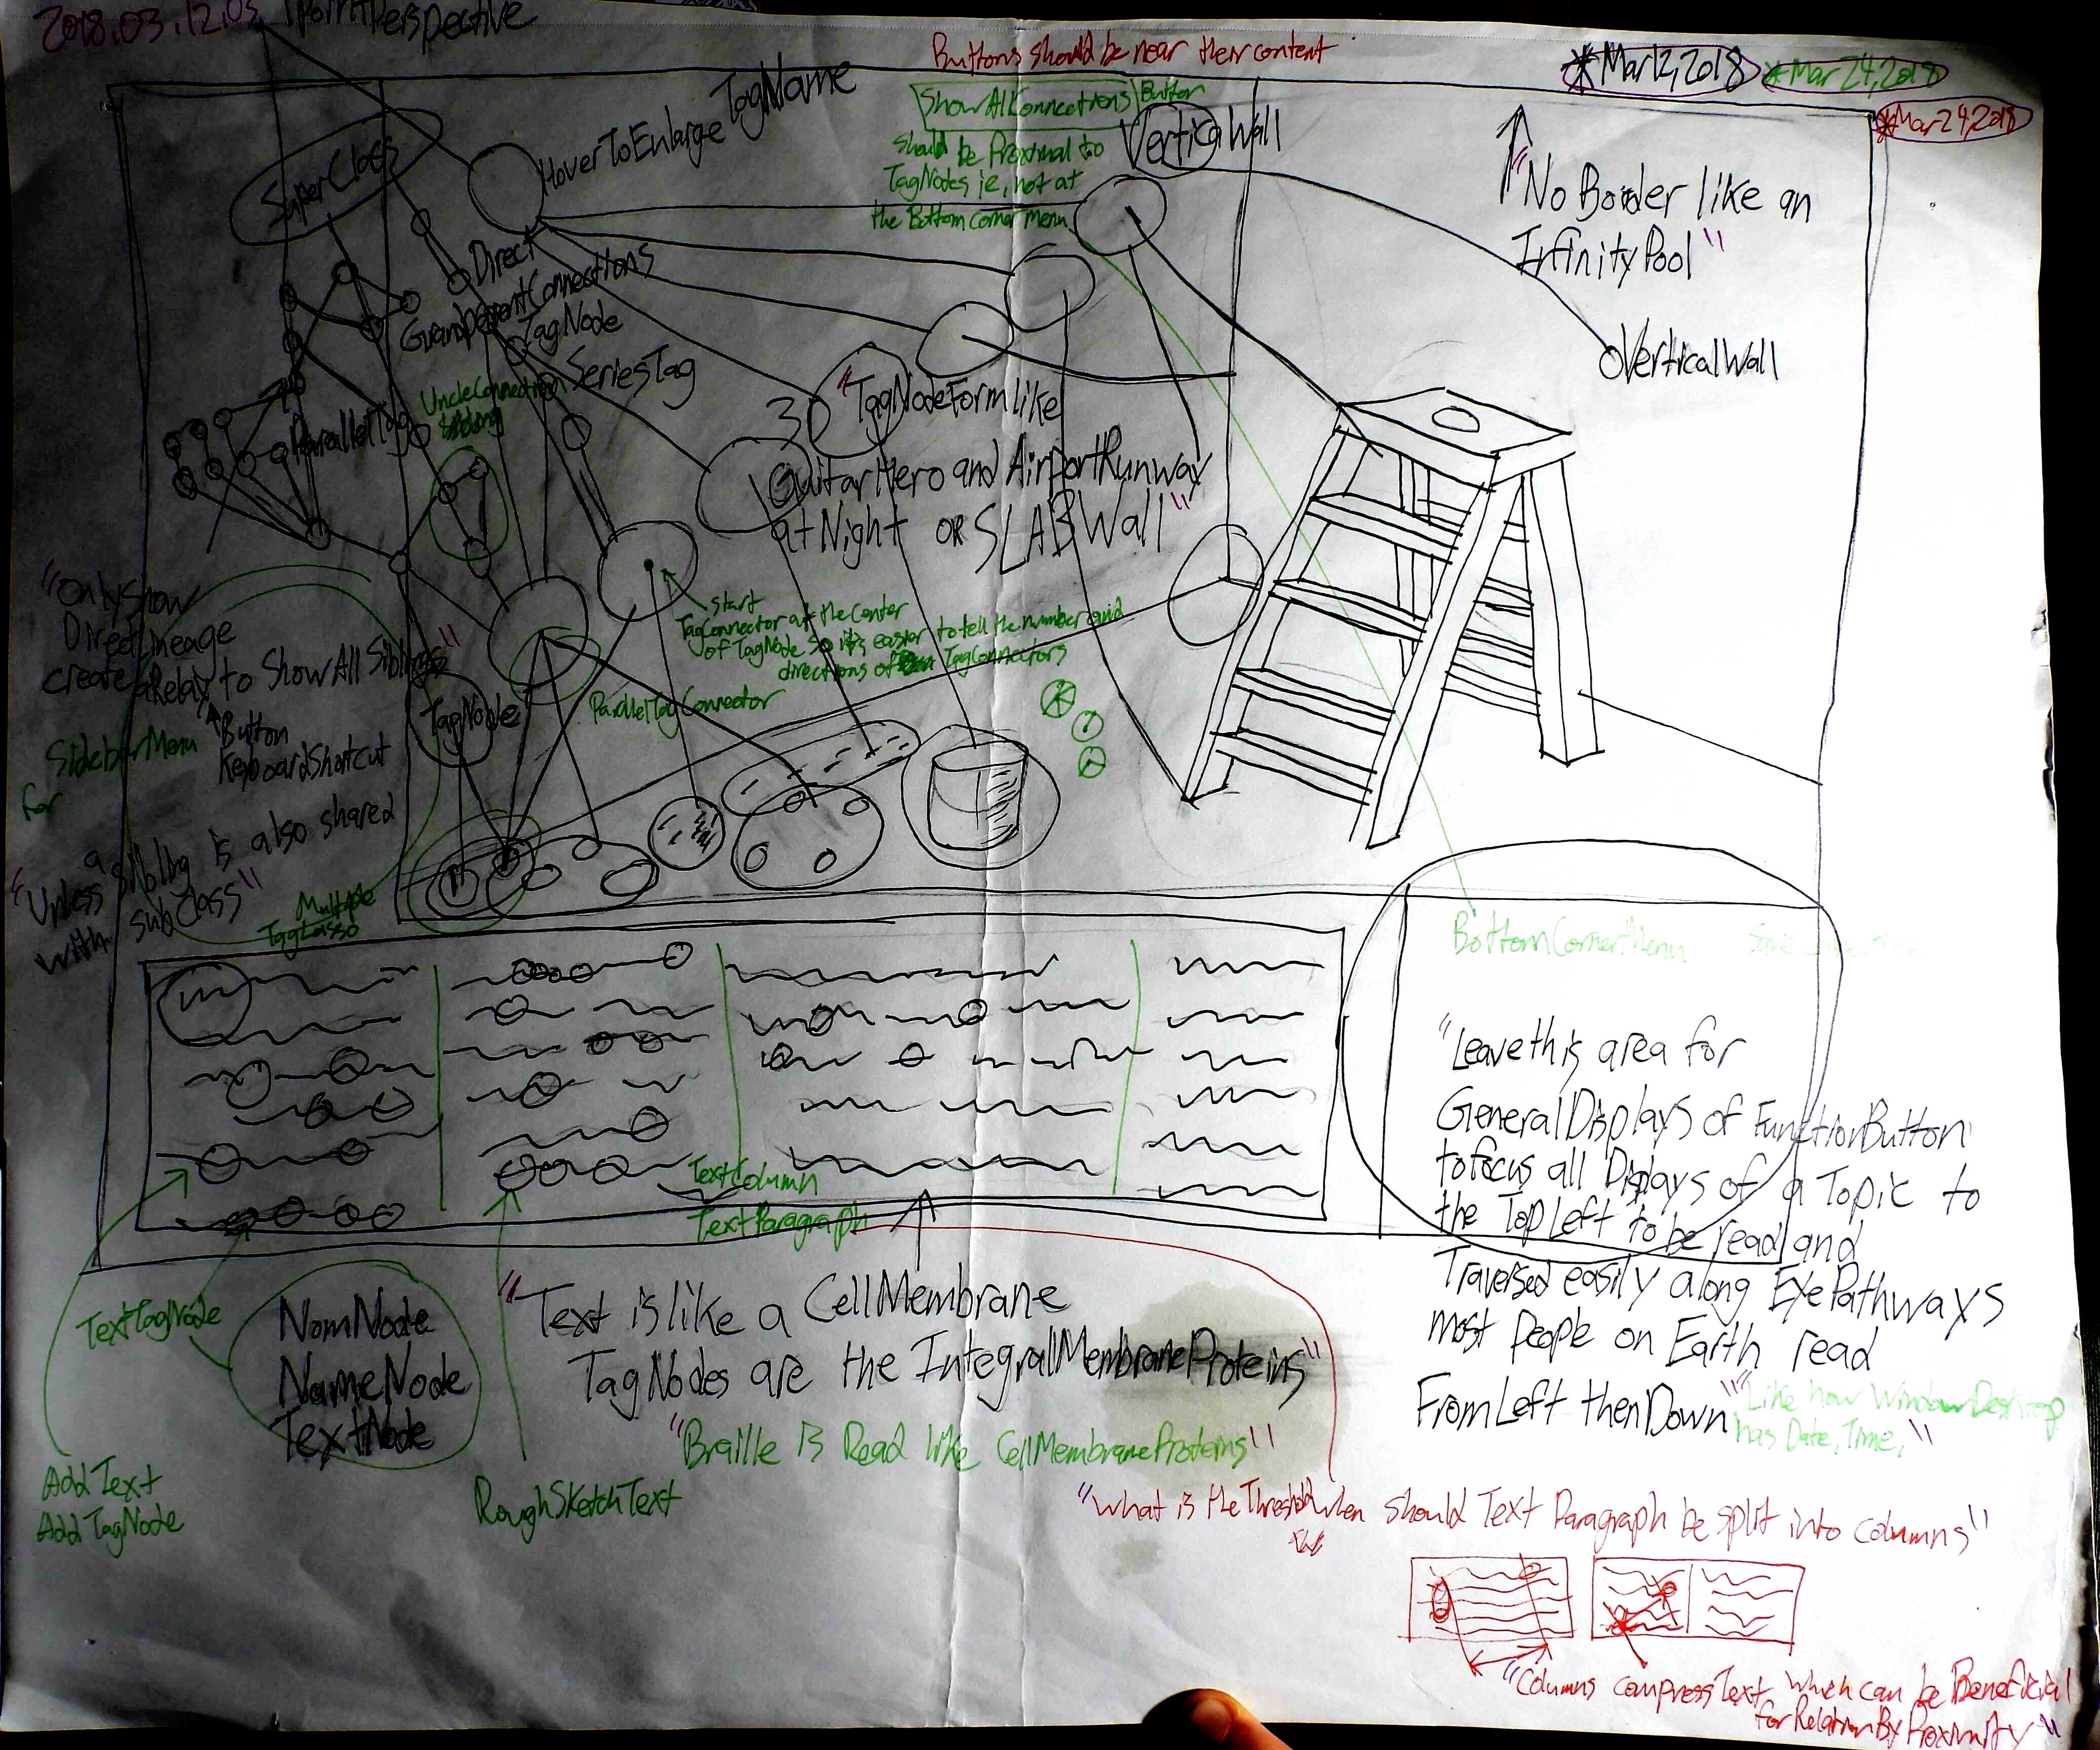 2018.03.12.03 1PointPerspective
Buttons should be near their content
*Mar12,2018 *Mar24,2018
*Mar24,2018
TagName
HoverToEnlarge
SuperClass
ShowAllConnections Button
should be Proximal to
TagNodes ie, not at
the Bottom corner menu
VerticalWall
"No Border like an
InfinityPool"
VerticalWall
Direct
GrandparentConnections
TagNode
SeriesTag
UncleConnection
Sibling
ParallelTag
3D "TagNodeForm like
GuitarHero and AirportRunway
at Night OR SLABWall"
start
TagConnector at the center
of TagNode so it's easier to tell the number and
directions of TagConnectors
ParallelTagConnector
"Only show
DirectLineage
create a Relay to Show All Siblings"
Button
KeyboardShortcut
SidebarMenu
for
TagNode
"Unless a sibling is also shared
with subClass"
Multiple
TagLasso
BottomCornerMenu
"Leave this area for
GeneralDisplays of FunctionButton
to focus all Displays of a Topic to
the Top Left to be read and
Traversed easily along EyePathways
most people on Earth read
From Left then Down"
"Like how WindowDesktop
has Date, Time,"
TextColumn
TextParagraph
TextTagNode
NomNode
NameNode
TextNode
"Text is like a CellMembrane
TagNodes are the IntegralMembraneProteins"
"Braille is Read like CellMembraneProteins"
Add Text
Add TagNode
RoughSketchText
"What is the Threshold when should Text Paragraph be split into columns"
"Columns compress Text which can be Beneficial
for Relation By Proximity"